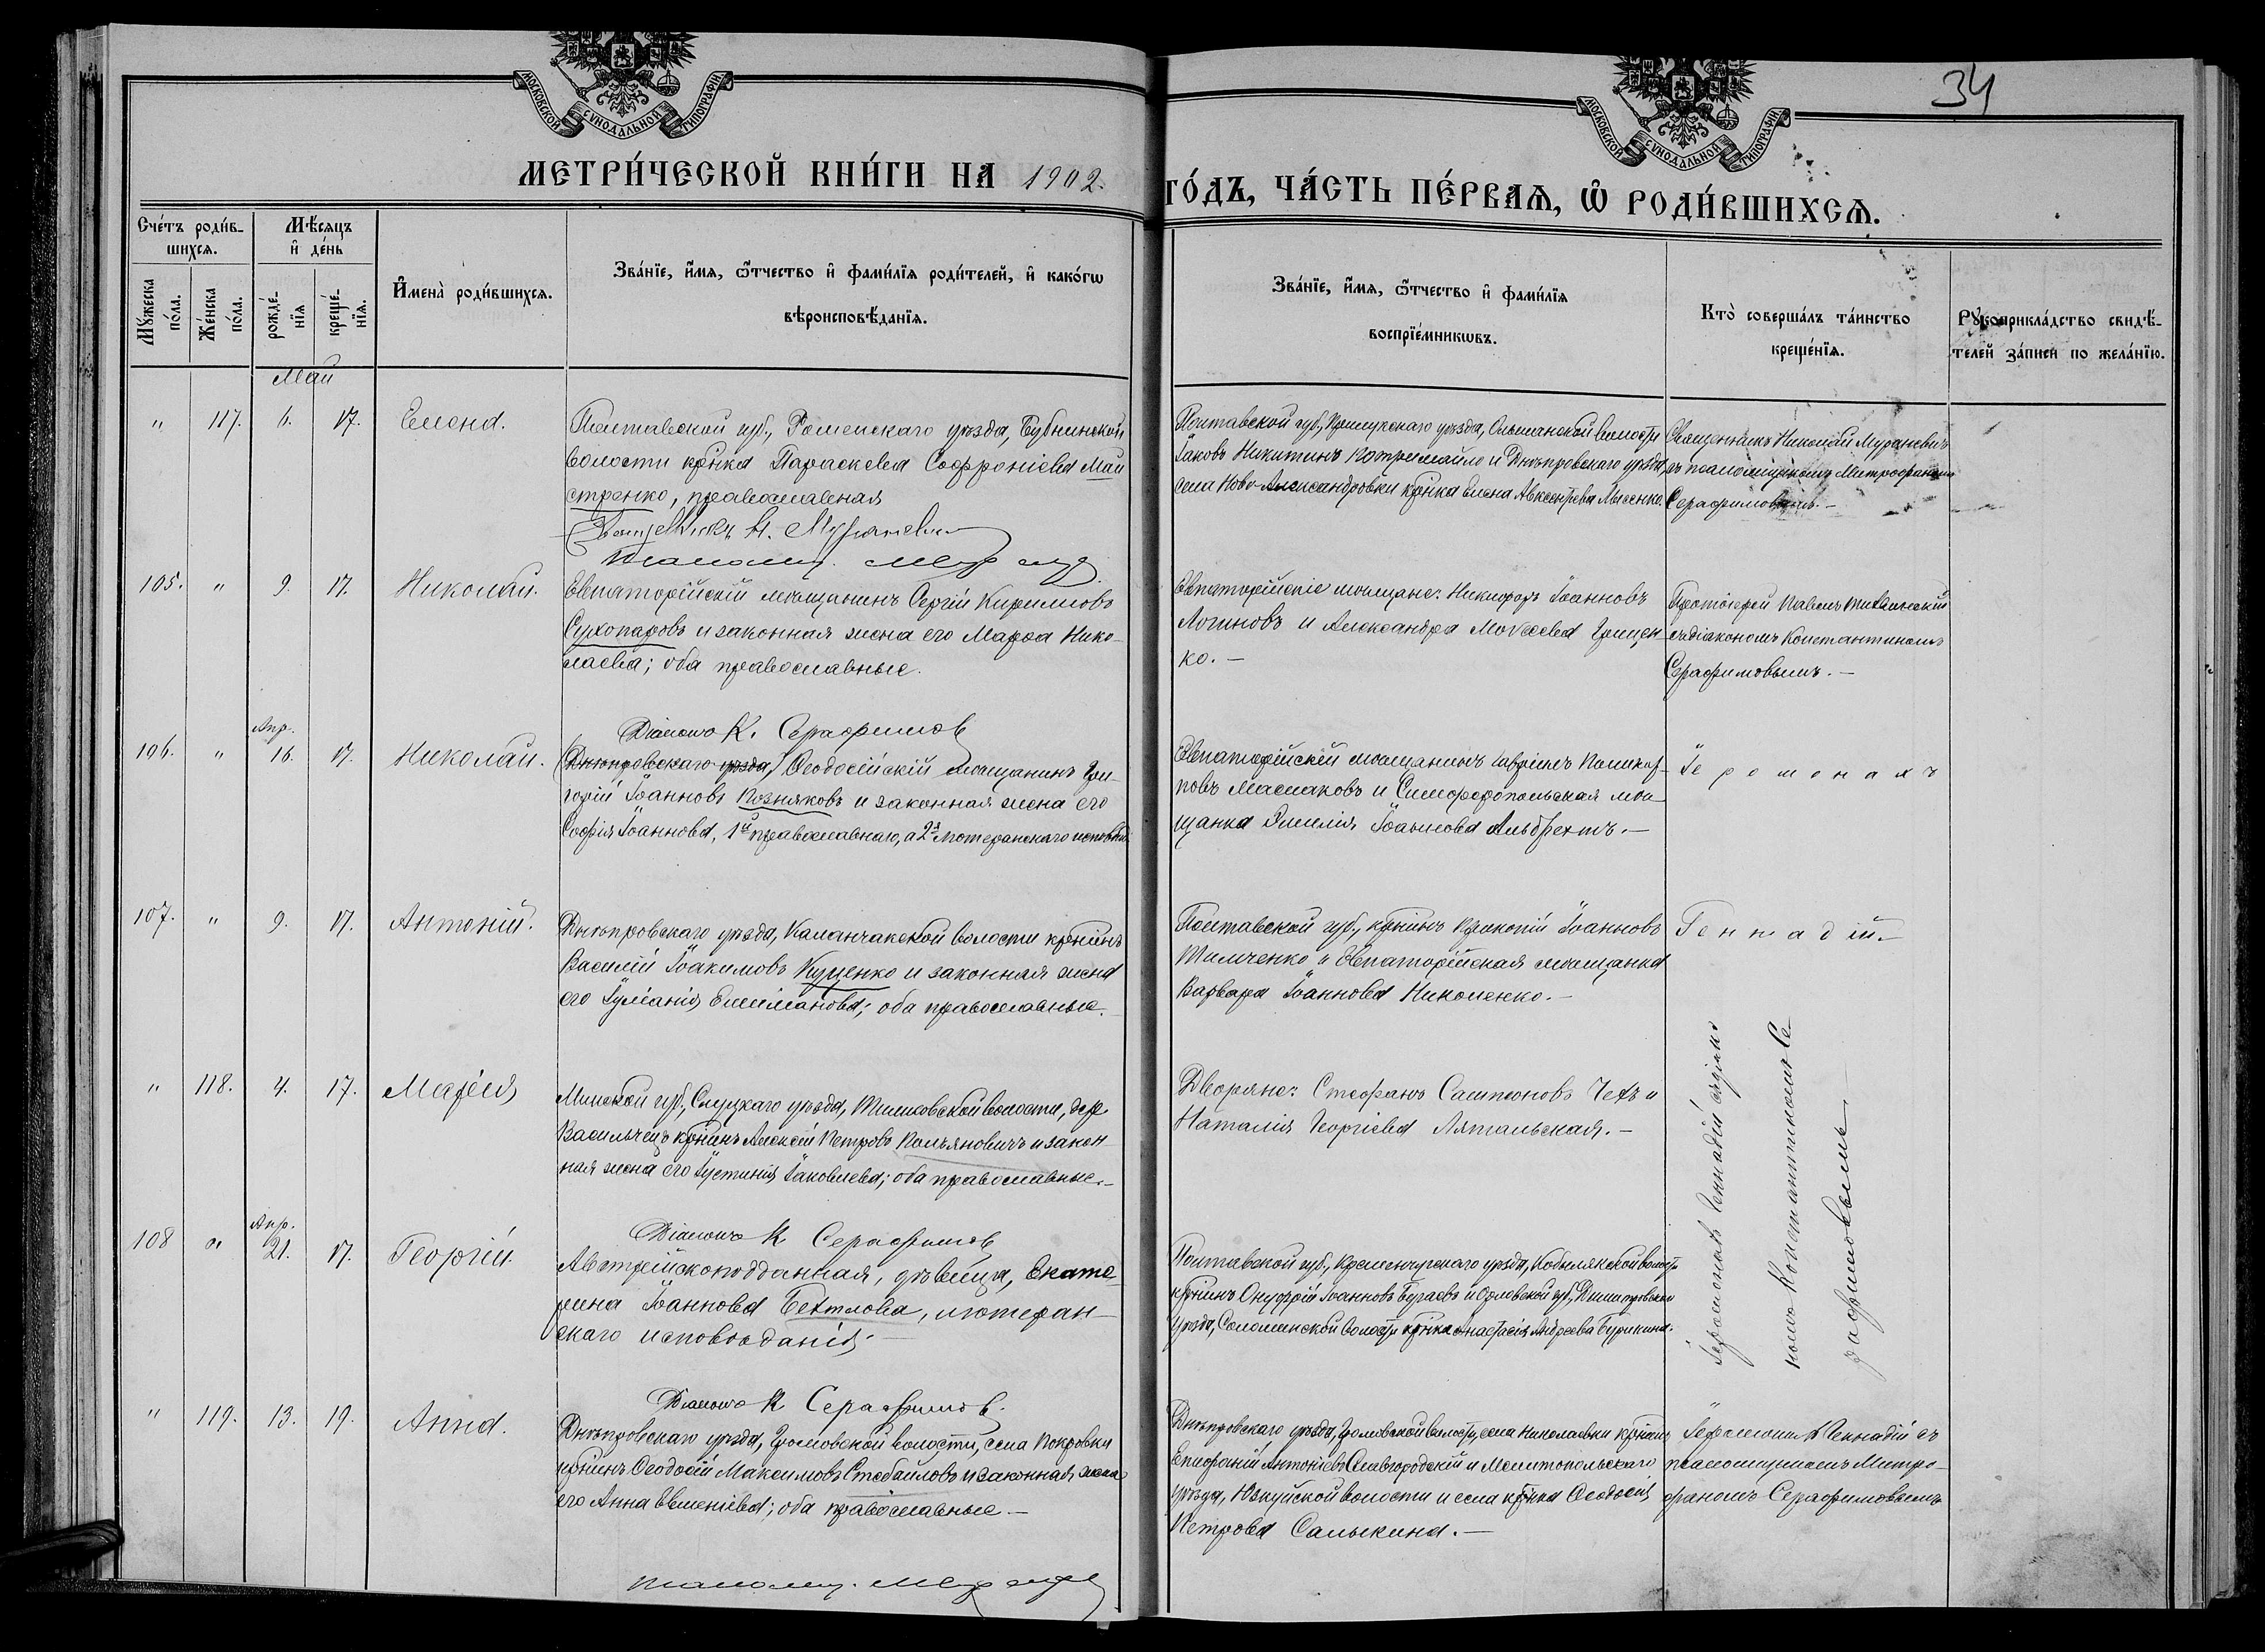 34
МОСКОВСКОЙ СѴНОДАЛЬНОЙ ТИПОГРАФІИ
МОСКОВСКОЙ СѴНОДАЛЬНОЙ ТИПОГРАФІИ
МЕТРИ́ЧЕСКОЙ КНИ́ГИ НА 1902.
ГО́ДЪ, ЧА́СТЬ ПЕ́РВАѦ, Ѽ РОДИ́ВШИХСѦ.
Сче́тъ роди́в-
шихсѧ.
Мꙋ́жеска
по́ла.
Же́нска
по́ла.
Мѣ́сѧцъ
и҆ де́нь
рожде́-
нїѧ
креще́-
нїѧ.
И҆мена̀ роди́вшихсѧ.
Зва́нїе, и҆́мѧ, ѻ҆́тчество и҆ фами́лїѧ роди́телей, и҆ како́гѡ
вѣроисповѣ́данїѧ.
Зва́нїе, и҆́мѧ, ѻ҆́тчество и҆ фами́лїѧ
воспрїе́мникѡвъ.
Кто̀ соверша́лъ та́инство
креще́нїѧ.
Рꙋкоприкла́дство свидѣ́-
телей за́писи по жела́нїю.
Май
" 117. 6. 17. Елена.
Полтавской губ., Роменскаго уѣзда, Бубнинской
волости крѣнка Параскева Софроніева Май
стренко, православная
Священникъ Н. Мураневич
псаломщ.
Полтавской губ., Прилукскаго уѣзда, Ольшанской волости
Іаковъ Никитинъ Котримайло и Днѣпровскаго уѣзда,
села Ново-Александровки крѣнка Елена Авксентьева Лысенко.
Священникъ Николай Мураневичъ
съ псаломщикомъ Митрофаномъ
Серафимовымъ.-
105. " 9. 17. Николай.
Евпаторійскій мѣщанинъ Сергій Кирилловъ
Сухопаровъ и законная жена его Марѳа Нико-
лаева; оба православные.
Діаконъ К. Серафимов
Евпаторійскіе мѣщане: Никифоръ Іоанновъ
Логиновъ и Александра Моисеева Грицен-
ко.-
Протоіерей Павелъ
съ діакономъ Константиномъ
Серафимовымъ.-
106. " Апр. 16. 17. Николай.
(Днѣпровскаго уѣзда,) Ѳеодосійскій мѣщанинъ Гри-
горій Іоанновъ Позняковъ и законная жена его
Софія Іоаннова, 1й православнаго, а 2я лютеранскаго исповѣд.
Евпаторійскій мѣщанинъ Гавріилъ Поликар-
повъ Маслаковъ и Симферопольская мѣ-
щанка Эмилія Іоаннова Альбрехтъ.-
Іеромонахъ
107. " 9. 17. Антоній.
Днѣпровскаго уѣзда, Каланчакской волости крѣнинъ
Василій Іоакимовъ Куценко и законная жена
его Іуліанія Емиліанова; оба православные.
Полтавской губ., крѣнинъ Прокопій Іоанновъ
Тимченко и Евпаторійская мѣщанка
Варвара Іоаннова Николенко.-
Геннадій.-
" 118. 4. 17. Марія
Минской губ., Слуцкаго уѣзда, Тимковской волости, дер.
Васильчиц крѣнинъ Алексій Петровъ Кольяновичъ и закон-
ная жена его Іустинія Іаковлева; оба православные.-
Діаконъ К Серафимов
Дворяне: Стефанъ Сампсоновъ Чехъ и
Наталія Георгіева Лятальская.-
Іеромонахъ Геннадій съ діако
номъ Константиномъ Се
рафимовымъ
108 " Апр. 21. 17. Георгій.
Австрійскоподданная, дѣвица, Екате-
рина Іоаннова Бехтлова, лютеран-
скаго исповѣданія.
Діаконъ К Серафимов.
Полтавской губ., Кременчугскаго уѣзда, Кобелякской волости
крѣнинъ Онуфрій Іоанновъ Бугаевъ и Орловской губ., Дмитровскаго
уѣзда, Соломинской волости крѣнка Анастасія Андреева Бурикина.
" 119. 13. 19. Анна.
Днѣпровскаго уѣзда, Громовской волости, села Покровки
крѣнинъ Ѳеодосій Максимовъ Стебайловъ и законная жена
его Анна Евменіева; оба православные.-
псаломщ.
Днѣпровскаго уѣзда, Громовской волости, села Николаевки крѣнинъ
Епифаній Антоніевъ Славгородскій и Мелитопольскаго
уѣзда, Юзкуйской волости и села крѣнка Ѳеодосія
Петрова Салыкина.-
Іеромонахъ Геннадій съ
псаломщикомъ Митро-
фаномъ Серафимовымъ